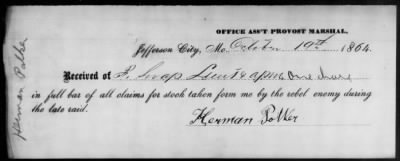 OFFICE ASS'T PROVOST MARSHAL,
Jefferson City, Mo. October 19th 1864.
Received of F. Swap Lieut & APM one horse
in full bar of all claims for stock taken form me by the rebel enemy during
the late raid.
Herman Polker
Herman Polker